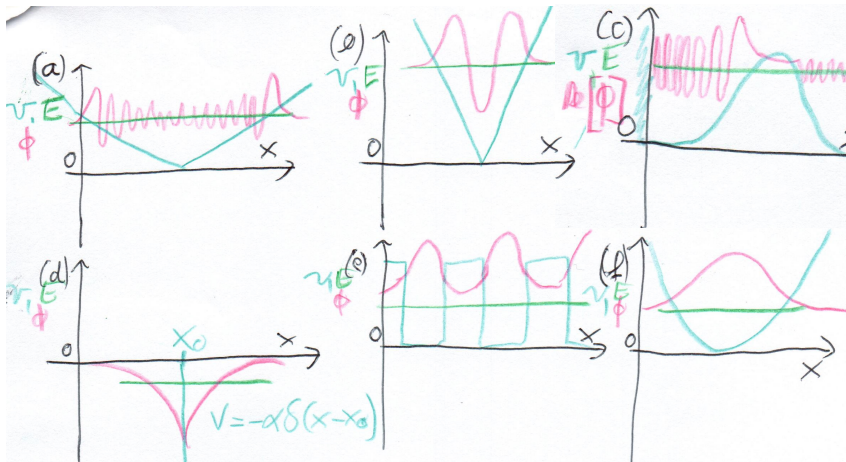 (a)
V, E
φ
0
x
(b)
V, E
φ
0
x
(c)
V E
Re[φ]
0
(d)
V, E
φ
0
x₀
x
V = -αδ(x-x₀)
(e)
V, E
φ
0
x
(f)
V, E
φ
0
x